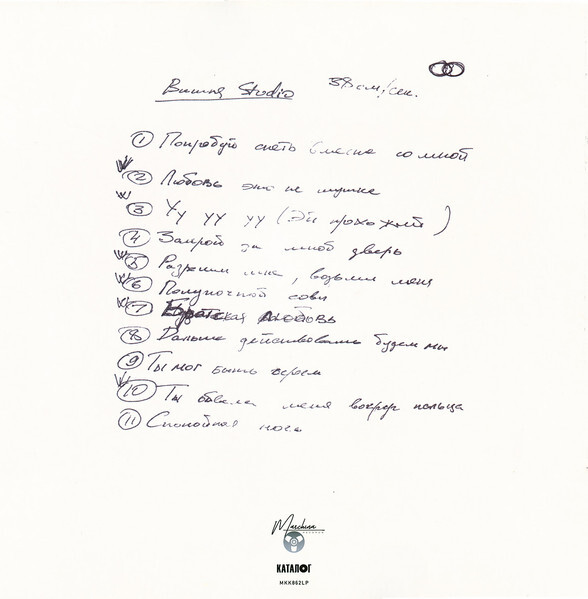 Вишня Studio 38 см/сек.
1 Попробуй спеть вместе со мной
2 Любовь это не шутка
3 Уу уу уу (Эй прохожий)
4 Закрой за мной дверь
5 Разреши мне, возьми меня
6 Полуночной совы
7 Братская любовь
8 Дальше действовать будем мы
9 Ты мог быть героем
10 Ты обвела меня вокруг пальца
11 Спокойная ночь
Maschina
RECORDS
КАТАЛОГ
MKK862LP